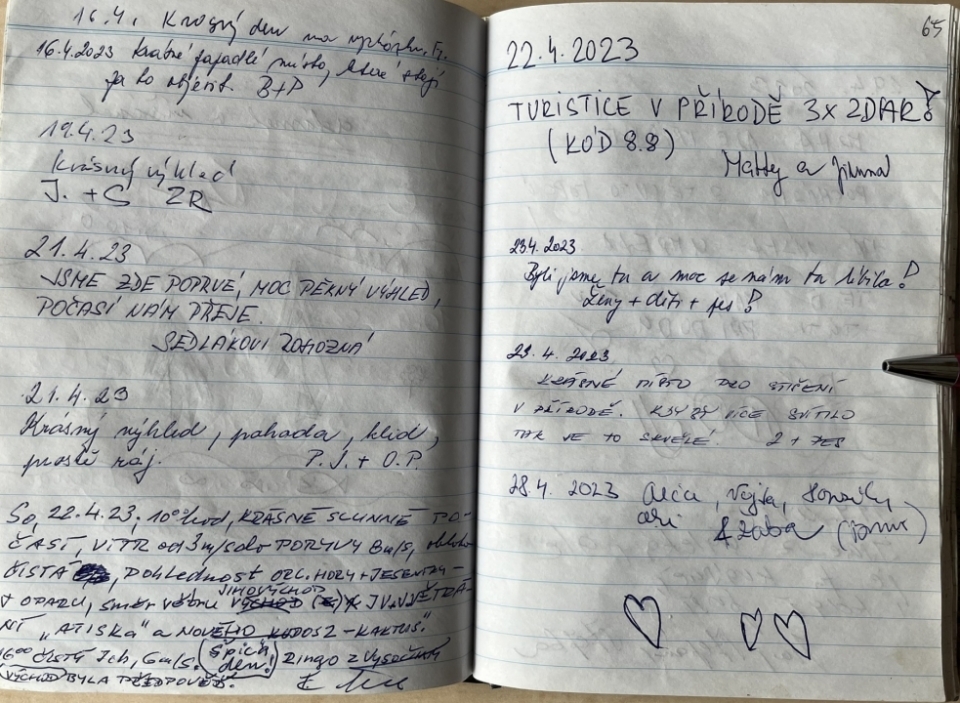 16.4. Krásný den na vycházku.
16.4.2023 krásné zapadlé místo, které stojí
za to objevit. B+P
19.4.23
krásný výhled
J. + S ZR
21.4.23
JSME ZDE POPRVÉ, MOC PĚKNÝ VÝHLED,
POČASÍ NÁM PŘEJE.
SEDLÁKOVI
21.4.23
Krásný výhled, pohoda, klid,
prostě ráj. P.J. + O.P.
So, 22.4.23, 10°° hod, KRÁSNÉ SLUNNÉ PO-
ČASÍ, VÍTR od 3m/s do PORYVY 8m/s, obloha
ČISTÁ, POHLEDNOST ORL. HORY + JESENÍKY -
V OPARU, směr větru JIHOVÝCHOD
NÍ "ATISKA" a NOVÉHO
16°° ČISTÝ Jch, 6m/s. (Špich den!) Ringo z VYSOČINY
VÝCHOD BYLA PŘEDPOVĚĎ.
65
22.4.2023
TURISTICE V PŘÍRODĚ 3x ZDAR!
(KÓD 8.8)
Mattey a
23.4.2023
Byli jsme tu a moc se nám tu líbila!
Ženy + děti + pes!
23.4.2023
KRÁSNÉ MÍSTO PRO ZTIŠENÍ
V PŘÍRODĚ. KDYBY VÍCE SVÍTILO
TAK JE TO SKVĚLÉ. 2 + PES
28.4.2023 Vojta,
& Žába